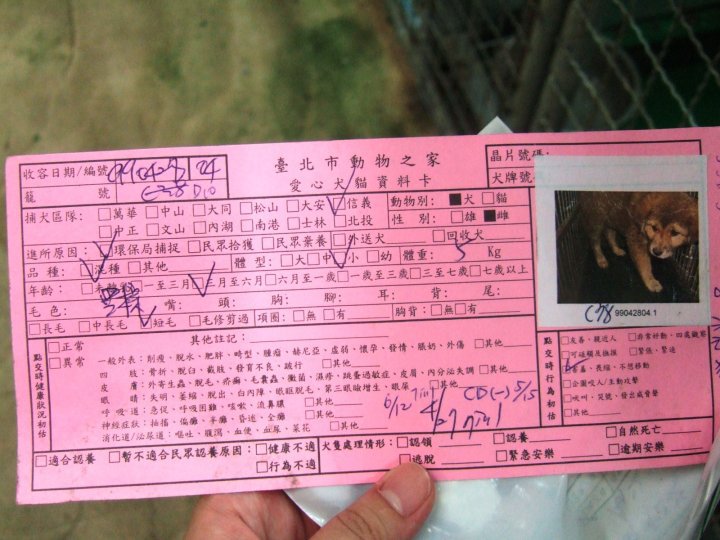 收容日期/編號 990427 24
臺北市動物之家
晶片號碼:
籠 號 C78 D10
愛心犬貓資料卡
犬牌號
捕犬區隊: □萬華 □中山 □大同 □松山 □大安 □信義
動物別: ■犬 □貓
□中正 □文山 □內湖 □南港 □士林 □北投
性 別: □雄 ■雌
進所原因: □環保局捕捉 □民眾拾獲 □民眾棄養 □外送犬 □回收犬
品 種: □混種 □其他 體 型: □大 □中 □小 □幼 體重: 5 Kg
年齡: □未離乳 □一至三月 □三月至六月 □六月至一歲 □一歲至三歲 □三至七歲 □七歲以上
毛 色: 嘴: 頭: 胸: 腳: 耳: 背: 尾:
□長毛 □中長毛 □短毛 □毛修剪過 項圈: □無 □有 胸背: □無 □有
C78 99042804.1
點交時健康狀況初估
□正常
□異常
其他註記:
一般外表: 削瘦、脫水、肥胖、畸型、腫瘤、赫尼亞、虛弱、懷孕、發情、脹奶、外傷 □其他
四 肢: 骨折、脫臼、截肢、發育不良、跛行 □其他
皮 膚: 外寄生蟲、脫毛、疥癬、毛囊蟲、黴菌、濕疹、跳蚤過敏症、皮屑、內分泌失調 □其他
眼 睛: 失明、萎縮、脫出、白內障、眼眶脫毛、第三眼瞼增生、眼屎 □其他
呼 吸 道: 急促、呼吸困難、咳嗽、流鼻膿 □其他
神經症狀: 抽搐、偏頭、半癱、昏迷、全癱 □其他
消化道/泌尿道: 嘔吐、腹瀉、血便、血尿、菜花 □其他
6/12 CD(-) 5/15
點交時行為初估
□友善、親近人 □非常好動、四處觀察
□可碰觸及撫摸 □緊張、緊迫
□害羞、畏縮、不想移動
□企圖咬人/主動攻擊
□吠叫、哭號、發出威脅聲
□其他
□適合認養 □暫不適合民眾認養原因: □健康不適
□行為不適
犬隻處理情形: □認領 □認養 □自然死亡
□逃脫 □緊急安樂 □逾期安樂